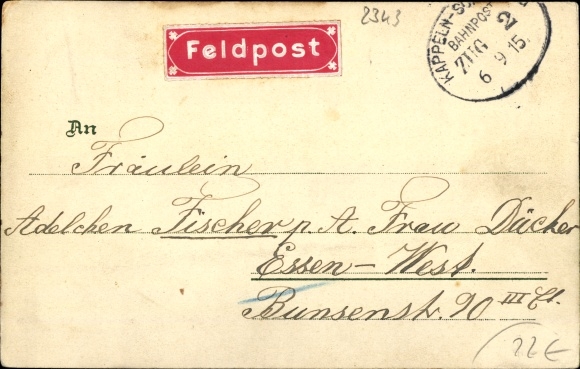 2343
Feldpost
KAPPELN-
BAHNPOST
ZUG 2
6 9 15.
An
Fräulein
Adelchen Fischer p. A. Frau Dücker
Essen-West.
Bunsenstr. 90 III Et.
22€